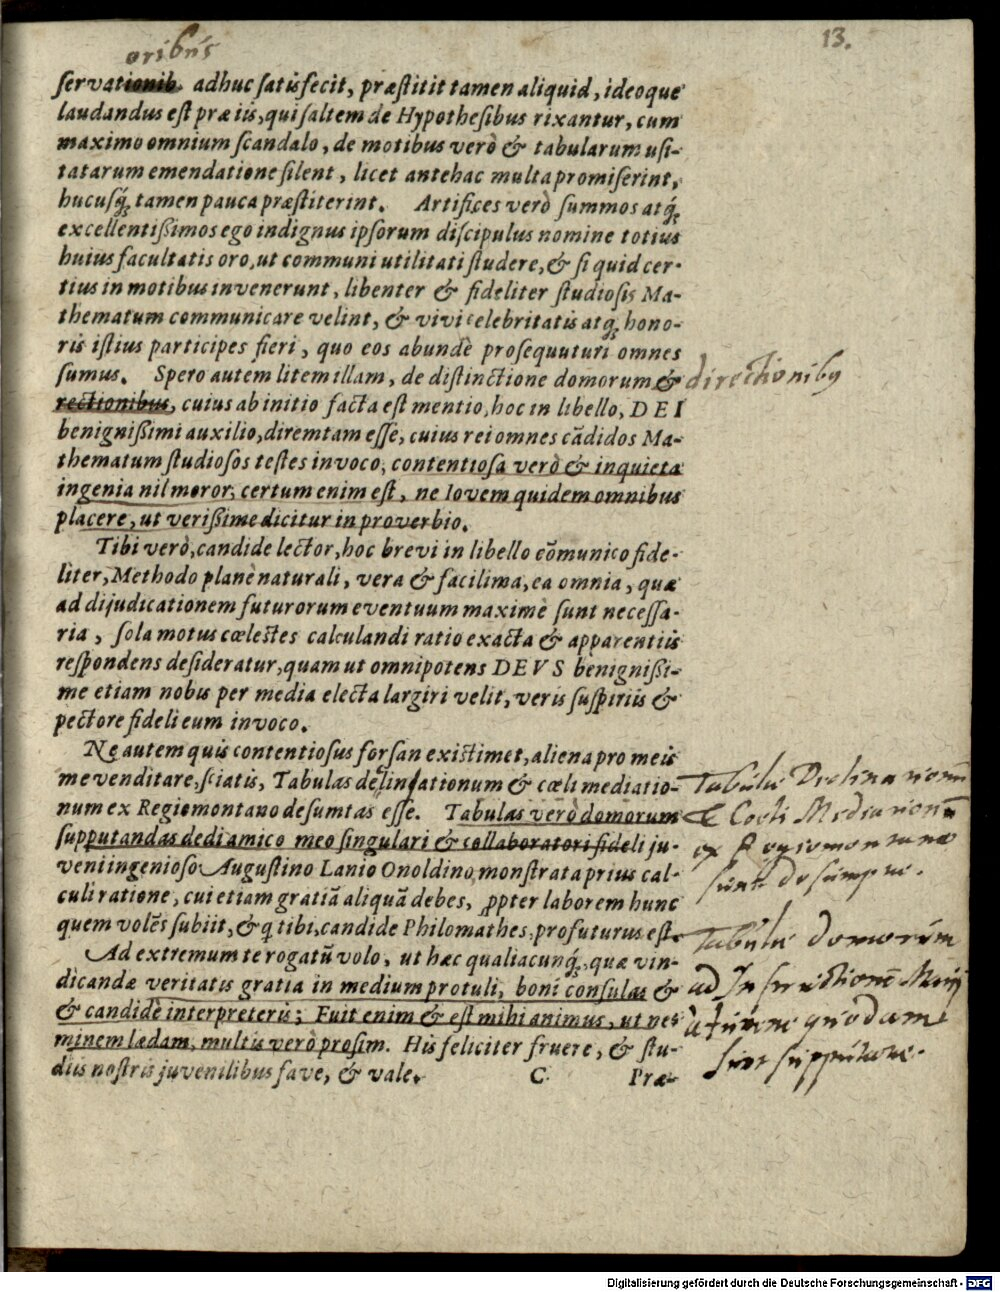 13.
oribus
servationib. adhuc satisfecit, præstitit tamen aliquid, ideoque
laudandus est præ iis, qui saltem de Hypothesibus rixantur, cum
maximo omnium scandalo, de motibus verò & tabularum usi-
tatarum emendatione silent, licet antehac multa promiserint,
hucusq́; tamen pauca præstiterint. Artifices verò summos atq́;
excellentißimos ego indignus ipsorum discipulus nomine totius
huius facultatis oro, ut communi utilitati studere, & si quid cer-
tius in motibus invenerunt, libenter & fideliter studiosis Ma-
thematum communicare velint, & vivi celebritatis atq́; hono-
ris istius participes fieri, quo eos abundè prosequuturi omnes
sumus. Spero autem litem illam, de distinctione domorum & directionibus
rectionibus, cuius ab initio facta est mentio, hoc in libello, DEI
benignißimi auxilio, diremtam esse, cuius rei omnes cādidos Ma-
thematum studiosos testes invoco, contentiosa verò & inquieta
ingenia nil moror; certum enim est, ne Iovem quidem omnibus
placere, ut verißime dicitur in proverbio.
Tibi verò, candide lector, hoc brevi in libello cōmunico fide-
liter, Methodo planè naturali, vera & facilima, ea omnia, quæ
ad dijudicationem futurorum eventuum maximè sunt necessa-
ria, sola motus cœlestes calculandi ratio exacta & apparentiis
respondens desideratur, quam ut omnipotens DEVS benignißi-
me etiam nobis per media electa largiri velit, veris suspiriis &
pectore fideli eum invoco.
Ne autem quis contentiosus forsan existimet, aliena pro meis
me venditare, sciatis, Tabulas declinationum & cœli mediatio-
num ex Regiomontano desumtas esse. Tabulas verò domorum
supputandas dedi amico meo singulari & collaboratori fideli ju-
veni ingenioso Augustino Lanio Onoldino, monstrata prius cal-
culi ratione, cui etiam gratiā aliquā debes, ꝓpter laborem hunc
quem volēs subiit, & q tibi, candide Philomathes, profuturus est.
Ad extremum te rogatū volo, ut hæc qualiacunq́;, quæ vin-
dicandæ veritatis gratia in medium protuli, boni consulas &
& candidè interpreteris; Fuit enim & est mihi animus, ut ne-
minem lædam, multis verò prosim. His feliciter fruere, & stu-
diis nostris juvenilibus fave, & vale.
C
Præ-
Tabulæ Declinationū
& Coeli Mediationū
ex Regiomontano
sunt desumptæ.
Tabulæ domorum
ad
quodam
sunt supputatae.
Digitalisierung gefördert durch die Deutsche Forschungsgemeinschaft - DFG